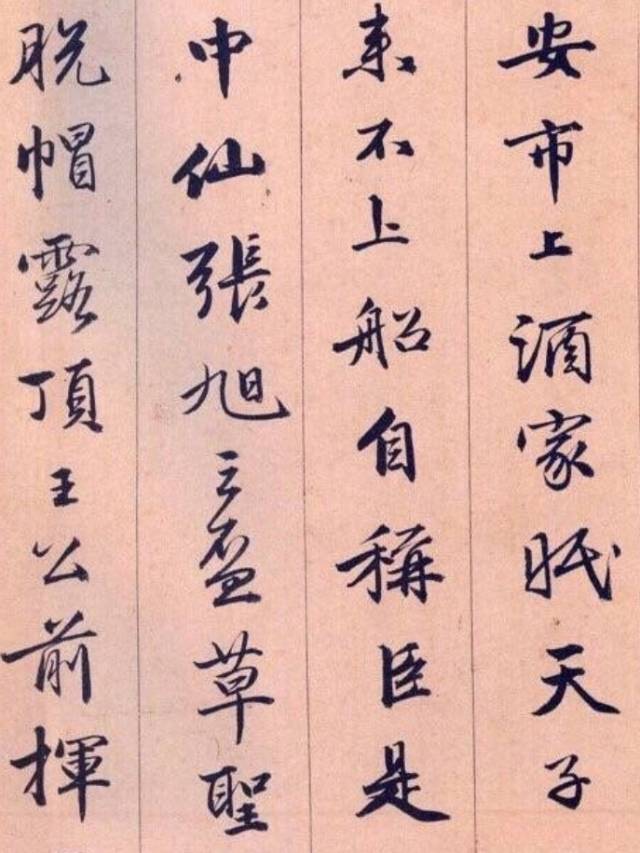 安市上酒家眠天子
來不上船自稱臣是
中仙張旭三盃草聖
脱帽露頂王公前揮